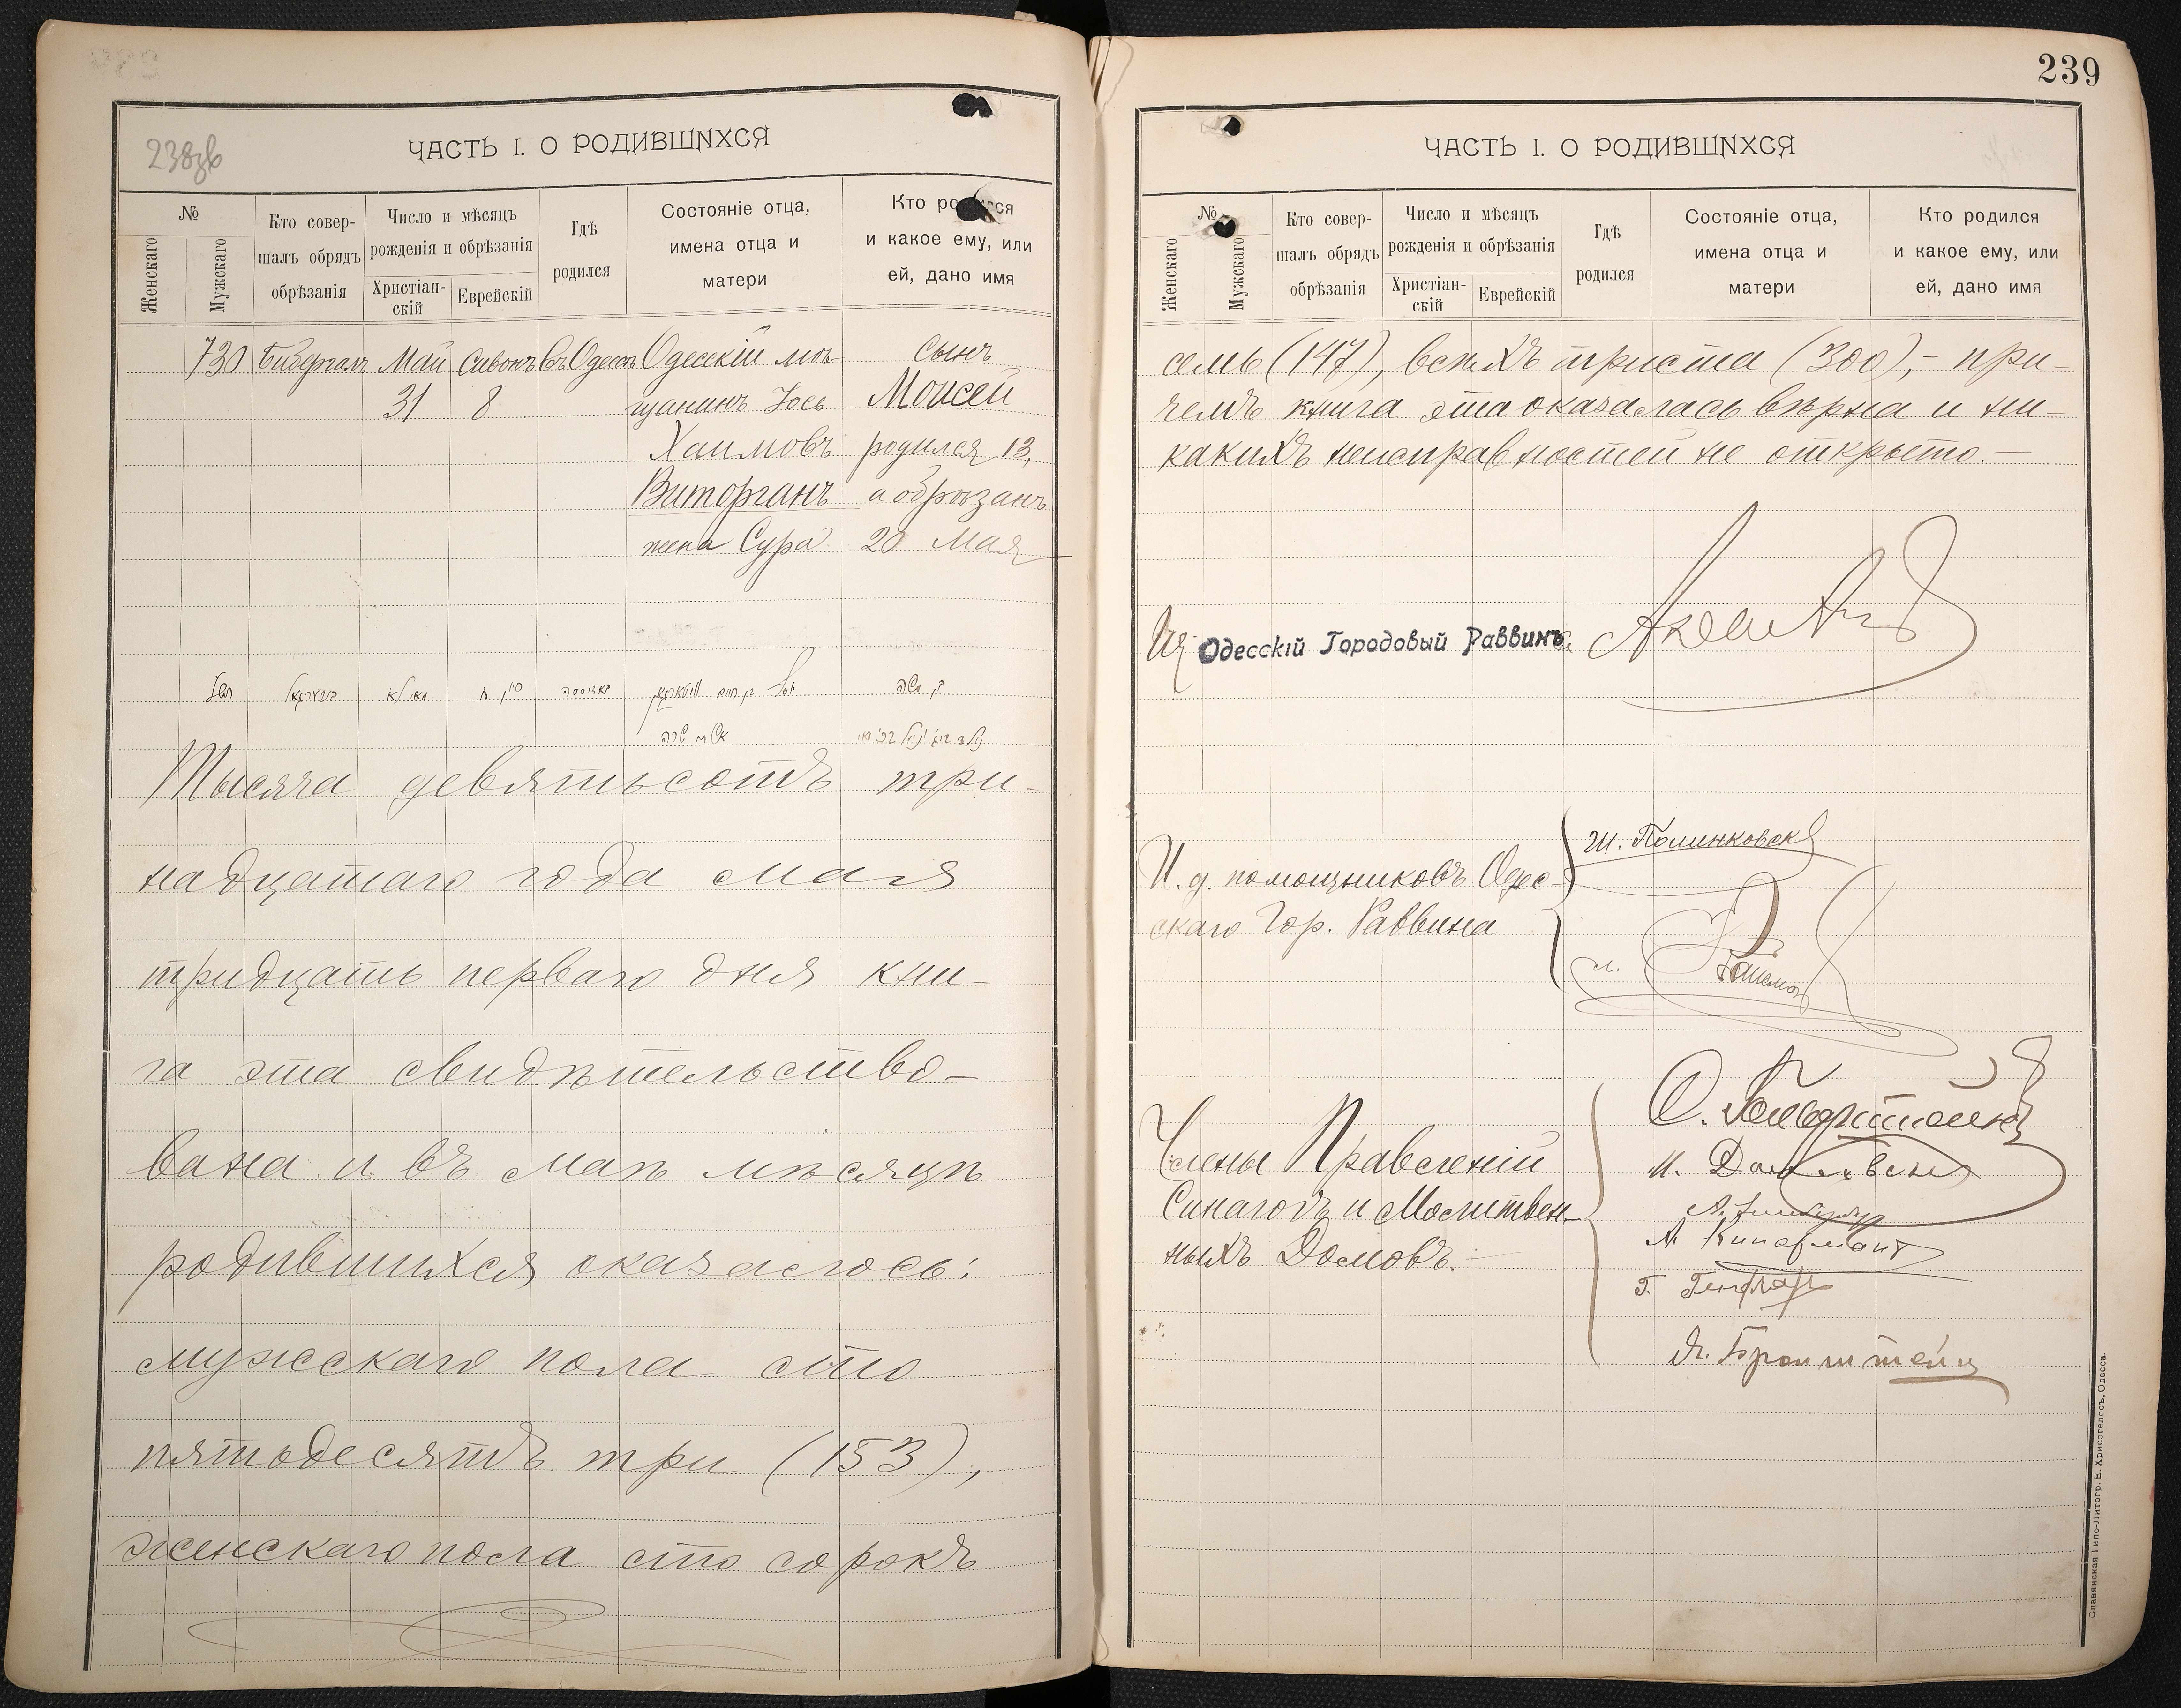 238зв
ЧАСТЬ I. О РОДИВШИХСЯ
№
Женскаго
Мужскаго
Кто совер-
шалъ обрядъ
обрѣзанія
Число и мѣсяцъ
рожденія и обрѣзанія
Христіан-
скій
Еврейскій
Гдѣ
родился
Состояніе отца,
имена отца и
матери
Кто родился
и какое ему, или
ей, дано имя
730 Бибергалъ Май Сивонъ Въ Одессѣ Одесскій мѣ- сынъ
31 8 щанинъ Іось Моисей
Хаимовъ родился 13,
Виторганъ а обрѣзанъ
жена Сура 20 Мая
Тысяча девятьсотъ три-
надцатаго года мая
тридцать перваго дня кни-
га эта свидѣтельство-
вана и въ маѣ мѣсяцѣ
родившихся оказалось:
мужескаго пола сто
пятьдесятъ три (153),
женскаго пола сто сорокъ
239
ЧАСТЬ I. О РОДИВШИХСЯ
№
Женскаго
Мужскаго
Кто совер-
шалъ обрядъ
обрѣзанія
Число и мѣсяцъ
рожденія и обрѣзанія
Христіан-
скій
Еврейскій
Гдѣ
родился
Состояніе отца,
имена отца и
матери
Кто родился
и какое ему, или
ей, дано имя
семь (147), всѣхъ триста (300),- при-
чемъ книга эта оказалась вѣрна и ни-
какихъ неисправностей не открыто.-
Одесскій Городовый Раввинъ
Ш. Полинковск
И. д. помощниковъ Одес-
скаго Гор. Раввина
Члены Правленій
Синагогъ и Молитвен-
ныхъ Домовъ.-
Бронштейнъ
Славянская Типо-Литогр. Е. Хрисогелосъ, Одесса.